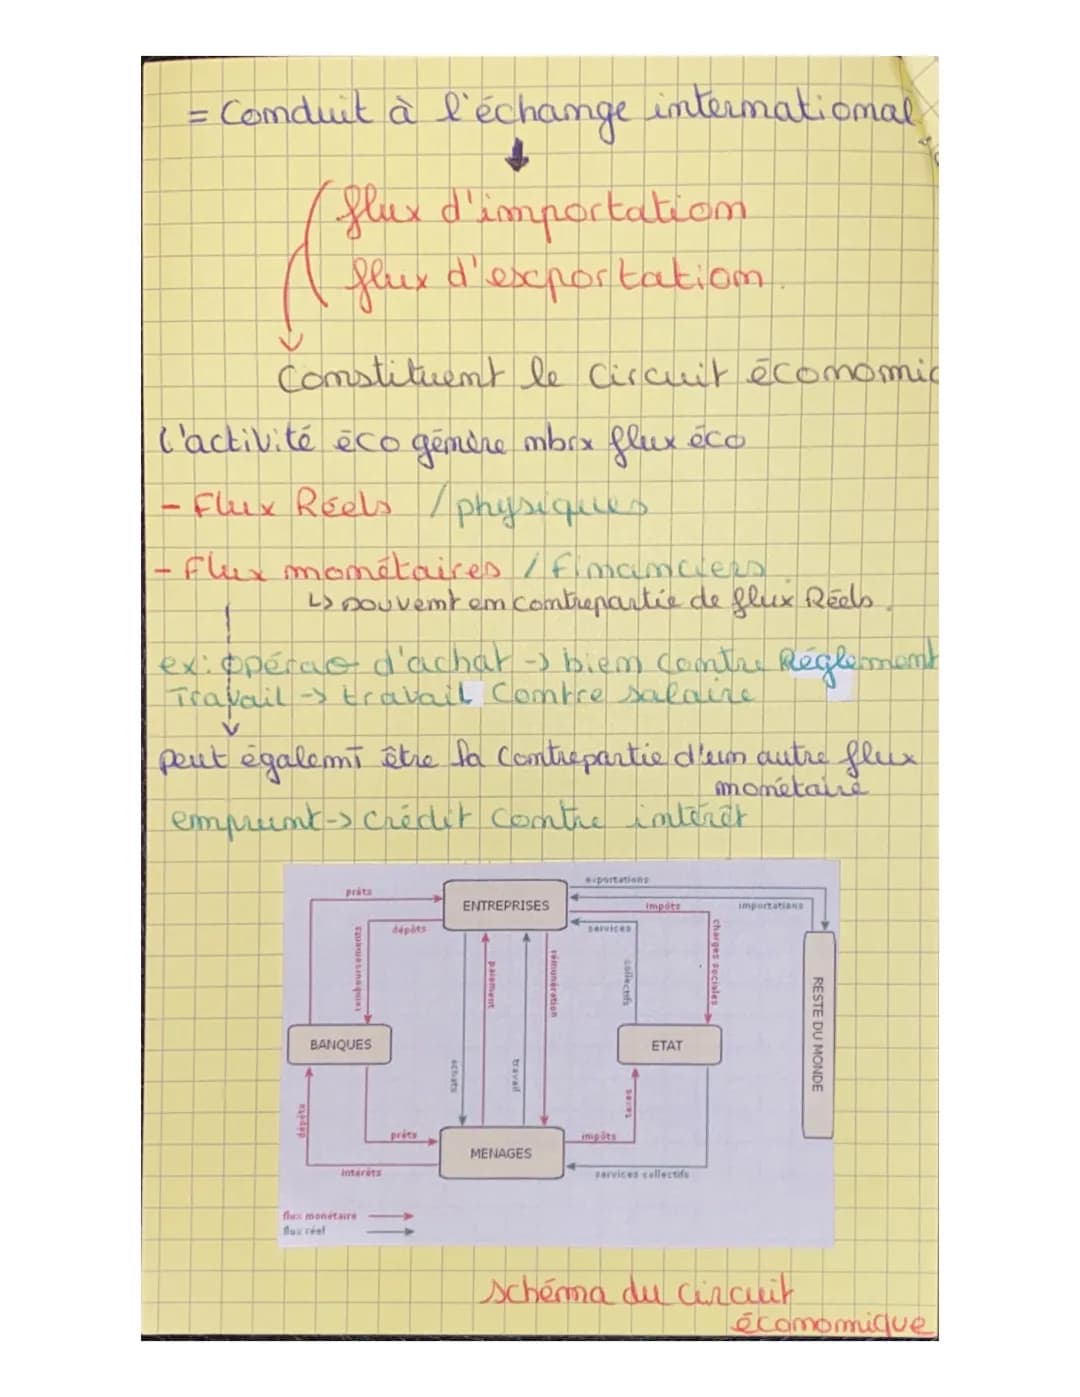 = Conduit à l'échange international
flux d'importation
flux d'exportation.
Constituent le circuit économic
L'activité éco génère nbrx flux éco
- Flux Réels / physiques
- Flux monétaires / financiers
↳ souvent en contrepartie de flux Réels.
ex: opérao d'achat → bien contre Réglement
Travail → travail contre salaire
peut égalemt être la contrepartie d'un autre flux
monétaire
emprunt → crédit contre intérêt
exportations
prêts
ENTREPRISES
impôts
importations
dépôts
services
remboursements
paiement
rémunération
collectifs
charges sociales
RESTE DU MONDE
BANQUES
ETAT
achats
travail
dépôts
taxes
prêts
impôts
MENAGES
intérêts
services collectifs
flux monétaire
flux réel
schéma du circuit
économique